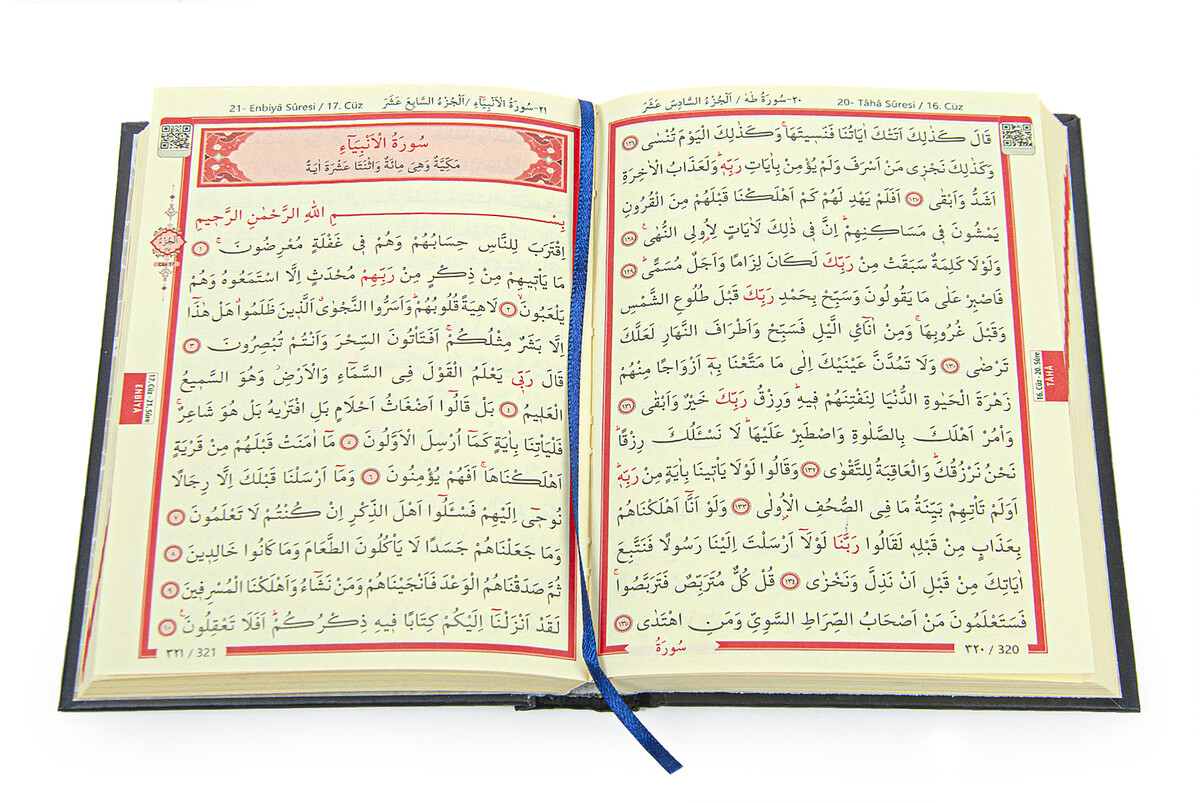 20- Tâhâ Sûresi / 16. Cüz
٢٠-سُورَةُ طٰهٰ / اَلْجُزْءُ السَّادِسَ عَشَرَ
قَالَ كَذٰلِكَ اَتَتْكَ اٰيَاتُنَا فَنَسِيتَهَاۚ وَكَذٰلِكَ الْيَوْمَ تُنْسٰى ﴿١٢٦﴾
وَكَذٰلِكَ نَجْزٖى مَنْ اَسْرَفَ وَلَمْ يُؤْمِنْ بِاٰيَاتِ رَبِّهٖؕ وَلَعَذَابُ الْاٰخِرَةِ
اَشَدُّ وَاَبْقٰى ﴿١٢٧﴾ اَفَلَمْ يَهْدِ لَهُمْ كَمْ اَهْلَكْنَا قَبْلَهُمْ مِنَ الْقُرُونِ
يَمْشُونَ فٖى مَسَاكِنِهِمْؕ اِنَّ فٖى ذٰلِكَ لَاٰيَاتٍ لِاُولِى النُّهٰىۚ ﴿١٢٨﴾
وَلَوْلَا كَلِمَةٌ سَبَقَتْ مِنْ رَبِّكَ لَكَانَ لِزَامًا وَاَجَلٌ مُسَمًّىؕ ﴿١٢٩﴾
فَاصْبِرْ عَلٰى مَا يَقُولُونَ وَسَبِّحْ بِحَمْدِ رَبِّكَ قَبْلَ طُلُوعِ الشَّمْسِ
وَقَبْلَ غُرُوبِهَاۚ وَمِنْ اٰنَآئِ الَّيْلِ فَسَبِّحْ وَاَطْرَافَ النَّهَارِ لَعَلَّكَ
تَرْضٰى ﴿١٣٠﴾ وَلَا تَمُدَّنَّ عَيْنَيْكَ اِلٰى مَا مَتَّعْنَا بِهٖٓ اَزْوَاجًا مِنْهُمْ
زَهْرَةَ الْحَيٰوةِ الدُّنْيَا لِنَفْتِنَهُمْ فٖيهِؕ وَرِزْقُ رَبِّكَ خَيْرٌ وَاَبْقٰى ﴿١٣١﴾
وَاْمُرْ اَهْلَكَ بِالصَّلٰوةِ وَاصْطَبِرْ عَلَيْهَاؕ لَا نَسْـَٔلُكَ رِزْقًاؕ
نَحْنُ نَرْزُقُكَؕ وَالْعَاقِبَةُ لِلتَّقْوٰى ﴿١٣٢﴾ وَقَالُوا لَوْلَا يَأْتٖينَا بِاٰيَةٍ مِنْ رَبِّهٖؕ
اَوَلَمْ تَأْتِهِمْ بَيِّنَةُ مَا فِى الصُّحُفِ الْاُولٰى ﴿١٣٣﴾ وَلَوْ اَنَّٓا اَهْلَكْنَاهُمْ
بِعَذَابٍ مِنْ قَبْلِهٖ لَقَالُوا رَبَّنَا لَوْلَٓا اَرْسَلْتَ اِلَيْنَا رَسُولًا فَنَتَّبِعَ
اٰيَاتِكَ مِنْ قَبْلِ اَنْ نَذِلَّ وَنَخْزٰى ﴿١٣٤﴾ قُلْ كُلٌّ مُتَرَبِّصٌ فَتَرَبَّصُواۚ
فَسَتَعْلَمُونَ مَنْ اَصْحَابُ الصِّرَاطِ السَّوِىِّ وَمَنِ اهْتَدٰى ﴿١٣٥﴾
سُورَةُ
٣٢٠ / 320
16. Cüz - 20. Sûre
TÂHÂ
21- Enbiyâ Sûresi / 17. Cüz
٢١-سُورَةُ الْاَنْبِيَٓاءِ / اَلْجُزْءُ السَّابِعَ عَشَرَ
سُورَةُ الْاَنْبِيَٓاءِ
مَكِّيَّةٌ وَهِىَ مِائَةٌ وَاثْنَتَا عَشْرَةَ اٰيَةً
بِسْمِ اللّٰهِ الرَّحْمٰنِ الرَّحٖيمِ
اِقْتَرَبَ لِلنَّاسِ حِسَابُهُمْ وَهُمْ فٖى غَفْلَةٍ مُعْرِضُونَۚ ﴿١﴾
مَا يَأْتٖيهِمْ مِنْ ذِكْرٍ مِنْ رَبِّهِمْ مُحْدَثٍ اِلَّا اسْتَمَعُوهُ وَهُمْ
يَلْعَبُونَۙ ﴿٢﴾ لَاهِيَةً قُلُوبُهُمْؕ وَاَسَرُّوا النَّجْوٰىۗ اَلَّذٖينَ ظَلَمُواۗ هَلْ هٰذَٓا
اِلَّا بَشَرٌ مِثْلُكُمْۚ اَفَتَأْتُونَ السِّحْرَ وَاَنْتُمْ تُبْصِرُونَ ﴿٣﴾
قَالَ رَبّٖى يَعْلَمُ الْقَوْلَ فِى السَّمَٓاءِ وَالْاَرْضِؗ وَهُوَ السَّمٖيعُ
الْعَلٖيمُ ﴿٤﴾ بَلْ قَالُٓوا اَضْغَاثُ اَحْلَامٍ بَلِ افْتَرٰيهُ بَلْ هُوَ شَاعِرٌۚ
فَلْيَأْتِنَا بِاٰيَةٍ كَمَٓا اُرْسِلَ الْاَوَّلُونَ ﴿٥﴾ مَٓا اٰمَنَتْ قَبْلَهُمْ مِنْ قَرْيَةٍ
اَهْلَكْنَاهَاۚ اَفَهُمْ يُؤْمِنُونَ ﴿٦﴾ وَمَٓا اَرْسَلْنَا قَبْلَكَ اِلَّا رِجَالًا
نُوحٖٓى اِلَيْهِمْ فَسْـَٔلُٓوا اَهْلَ الذِّكْرِ اِنْ كُنْتُمْ لَا تَعْلَمُونَ ﴿٧﴾
وَمَا جَعَلْنَاهُمْ جَسَدًا لَا يَأْكُلُونَ الطَّعَامَ وَمَا كَانُوا خَالِدٖينَ ﴿٨﴾
ثُمَّ صَدَقْنَاهُمُ الْوَعْدَ فَاَنْجَيْنَاهُمْ وَمَنْ نَشَٓاءُ وَاَهْلَكْنَا الْمُسْرِفٖينَ ﴿٩﴾
لَقَدْ اَنْزَلْنَٓا اِلَيْكُمْ كِتَابًا فٖيهِ ذِكْرُكُمْؕ اَفَلَا تَعْقِلُونَ۟ ﴿١٠﴾
٣٢١ / 321
اَلْجُزْءُ
17. Cüz - 21. Sûre
ENBİYÂ